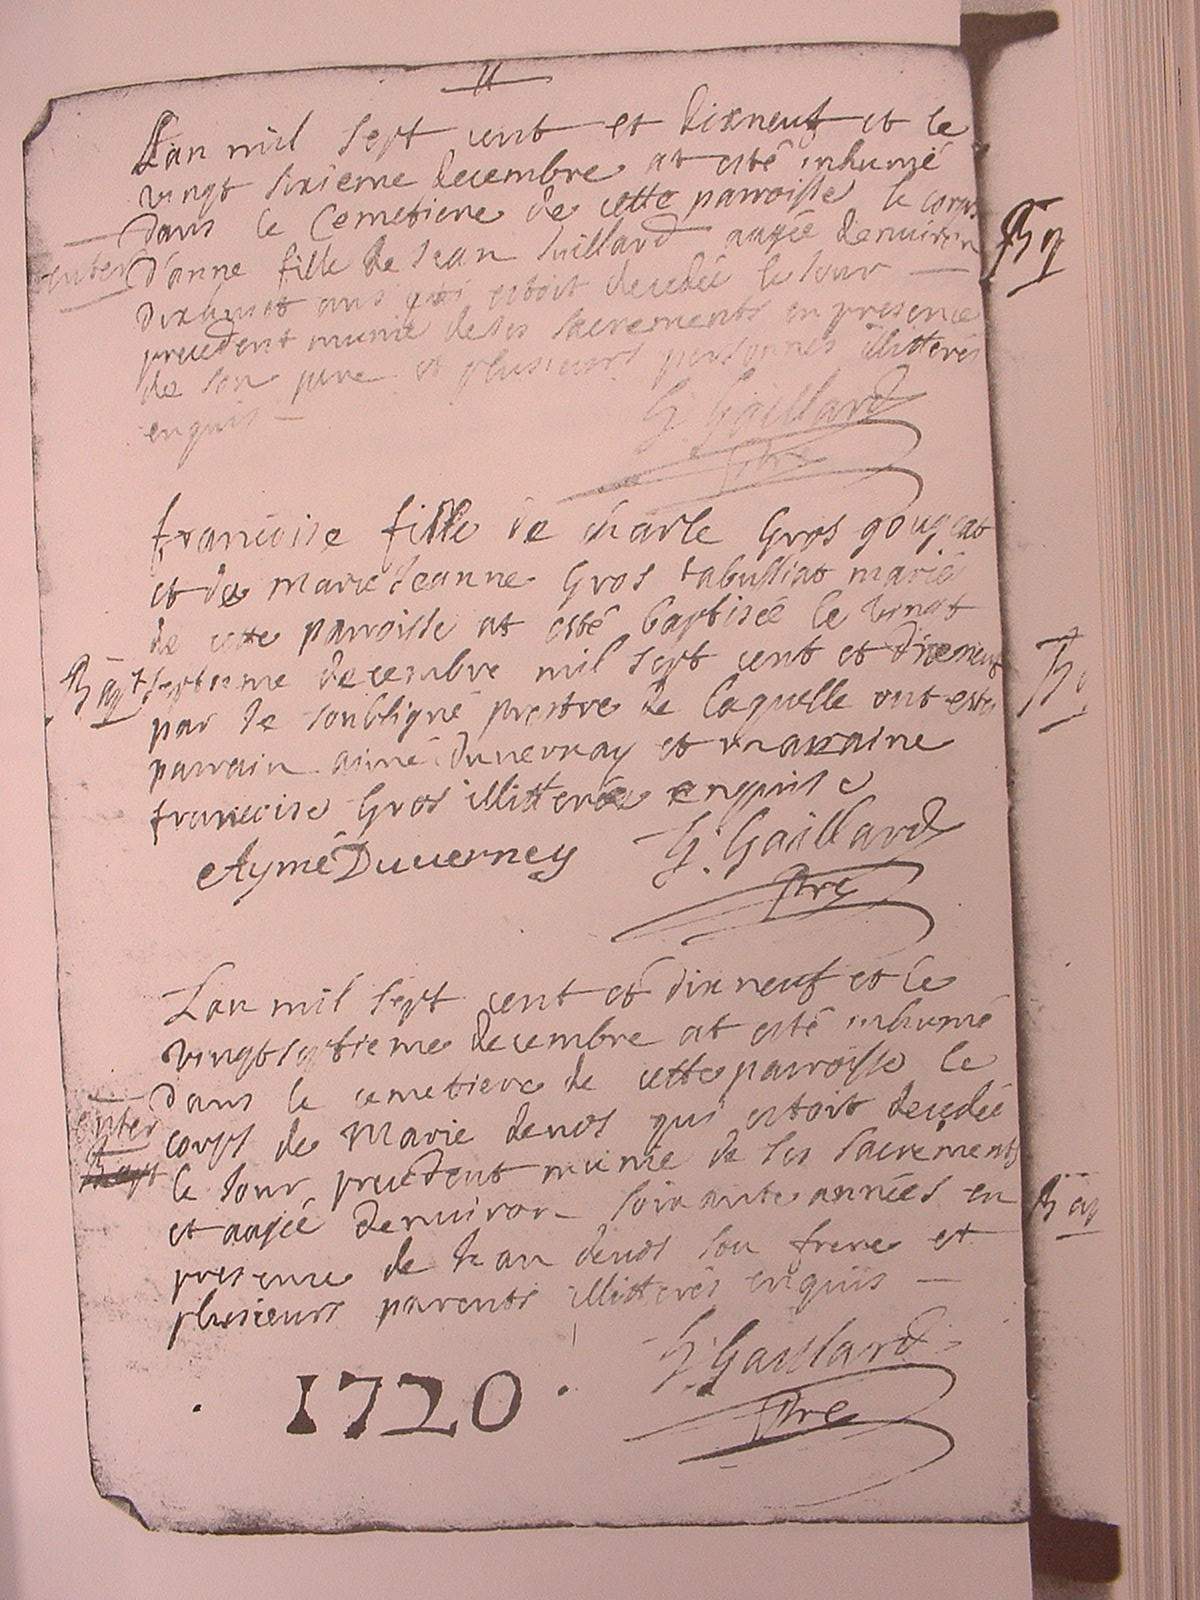 Lan mil sept cent et dixneuf et le
vingt sixieme decembre at esté inhumé
dans le Cemetiere de cette parroisse le corps
enter
d'anne fille de Jean aagée denuiron
dixhuict ans qui estoit decedée le Jour
precedent munie de ses sacrements en presence
de son pere et plusieurs personnes illitterés
enquis
G. Gaillard
ptre
francoise fille de charle Gros gougeat
et de marie Jeanne Gros tabussiat mariés
de cette parroisse at esté baptisée le vingt
Bapt
septieme decembre mil sept cent et dixneuf
par Je soubsigné prestre de laquelle ont estés
parrain aimé duvernay et marraine
francoise Gros illitterée enquise
Aymé Duuerney
G. Gaillard
ptre
Lan mil sept cent et dixneuf et le
vingt septieme decembre at esté inhumé
dans le cemetiere de cette parroisse le
enter
corps de Marie qui estoit decedée
Bapt
le Jour precedent munie de ses sacrements
et aagée denuiron soixante années en
presence de Jean son frere et
plusieurs parents illitterés enquis
G. Gaillard
ptre
. 1720 .